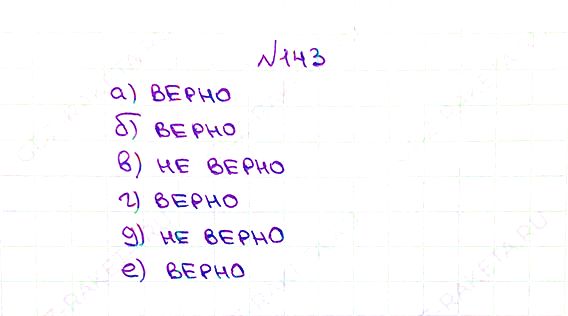 №143
а) ВЕРНО
б) ВЕРНО
в) НЕ ВЕРНО
г) ВЕРНО
д) НЕ ВЕРНО
е) ВЕРНО